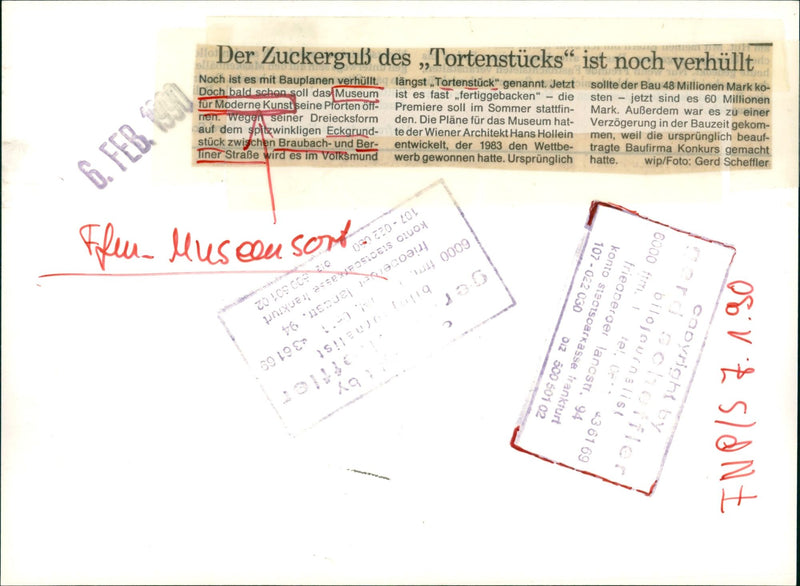 Der Zuckerguß des „Tortenstücks“ ist noch verhüllt
Noch ist es mit Bauplanen verhüllt.
Doch bald schon soll das Museum
für Moderne Kunst seine Pforten öff-
nen. Wegen seiner Dreiecksform
auf dem spitzwinkligen Eckgrund-
stück zwischen Braubach- und Ber-
liner Straße wird es im Volksmund
längst „Tortenstück“ genannt. Jetzt
ist es fast „fertiggebacken“ – die
Premiere soll im Sommer stattfin-
den. Die Pläne für das Museum hat-
te der Wiener Architekt Hans Hollein
entwickelt, der 1983 den Wettbe-
werb gewonnen hatte. Ursprünglich
sollte der Bau 48 Millionen Mark ko-
sten – jetzt sind es 60 Millionen
Mark. Außerdem war es zu einer
Verzögerung in der Bauzeit gekom-
men, weil die ursprünglich beauf-
tragte Baufirma Konkurs gemacht
hatte. wip/Foto: Gerd Scheffler
6. FEB. 1990
Ffm- Museumsort
konto stadtsparkasse frankfurt
107-022 030
friedberger landstr. 94
436169
copyright by
gerd scheffler
bildjournalist
6000 ffm. 1
friedberger landstr. 94
436169
konto stadtsparkasse frankfurt
107-022 030
blz 500 501 02
FNP/S 7.1.90